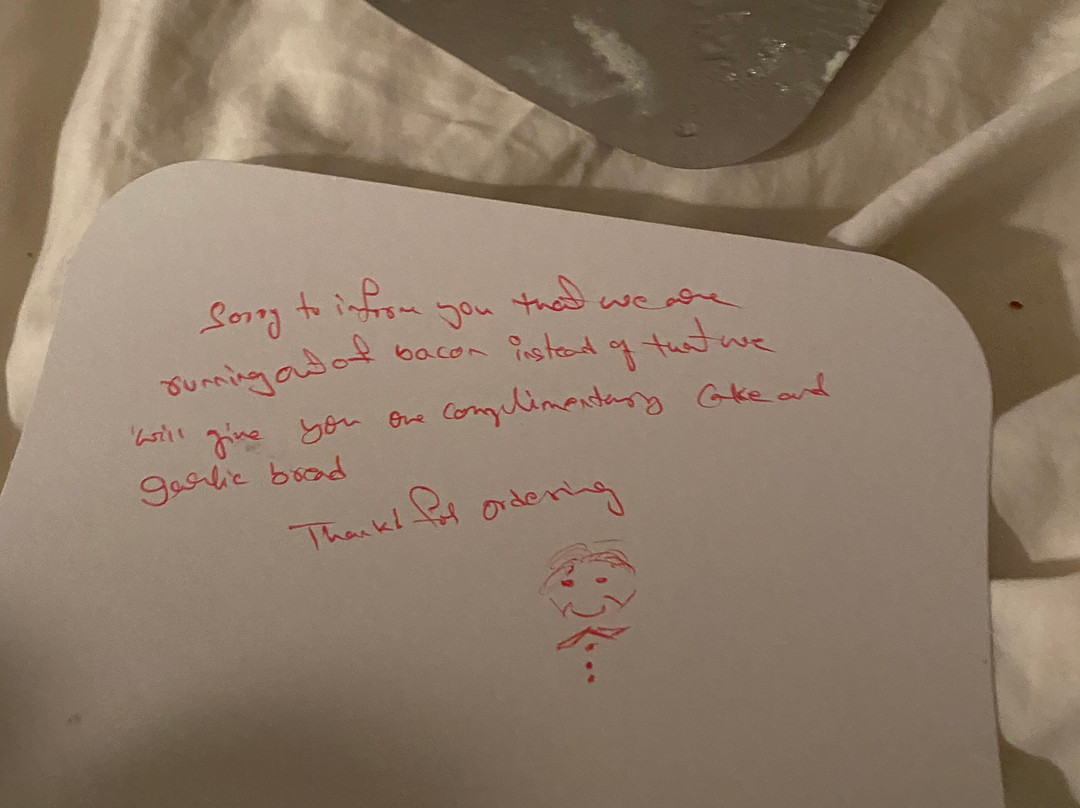 Sorry to infrom you that we are
running out of bacon instead of that we
will give you one complimentary Cake and
garlic bread
Thanks for ordering